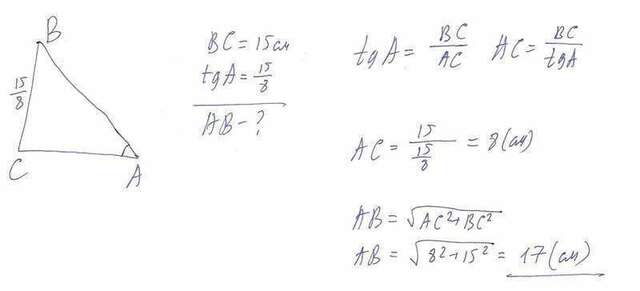 B
15/8
C
A
BC = 15см
tgA = 15/8
AB - ?
tgA = BC/AC AC = BC/tgA
AC = 15/(15/8) = 8 (см)
AB = √AC²+BC²
AB = √8²+15² = 17 (см)